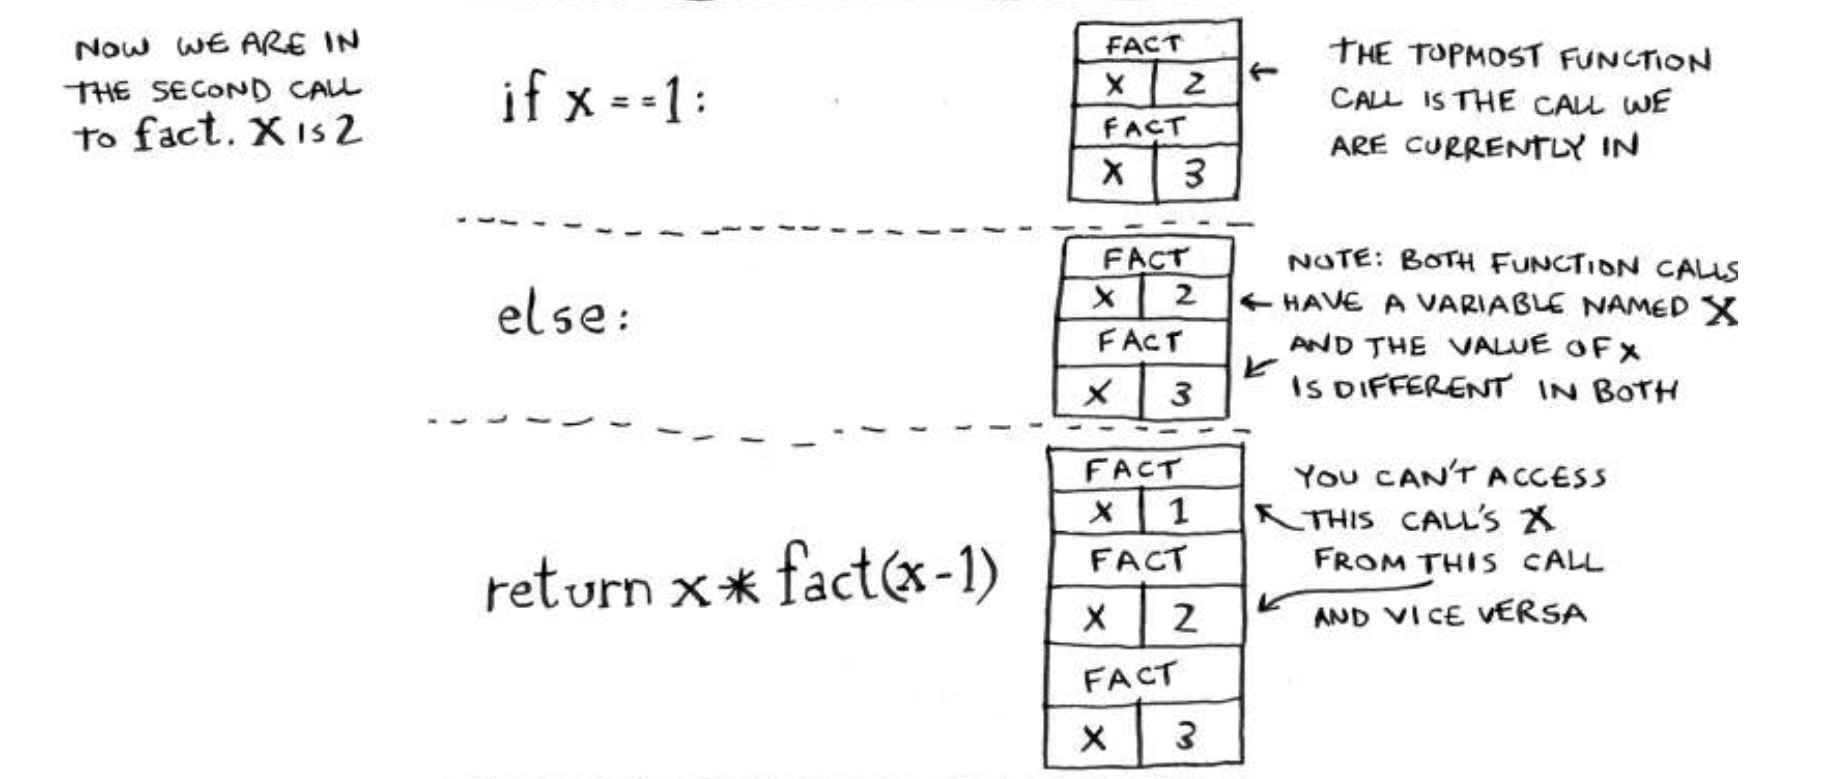 NOW WE ARE IN
THE SECOND CALL
TO fact. X IS 2
if x == 1:
FACT
X 2
FACT
X 3
THE TOPMOST FUNCTION
CALL IS THE CALL WE
ARE CURRENTLY IN
else:
FACT
X 2
FACT
X 3
NOTE: BOTH FUNCTION CALLS
HAVE A VARIABLE NAMED X
AND THE VALUE OF X
IS DIFFERENT IN BOTH
return x * fact(x-1)
FACT
X 1
FACT
X 2
FACT
X 3
YOU CAN'T ACCESS
THIS CALL'S X
FROM THIS CALL
AND VICE VERSA